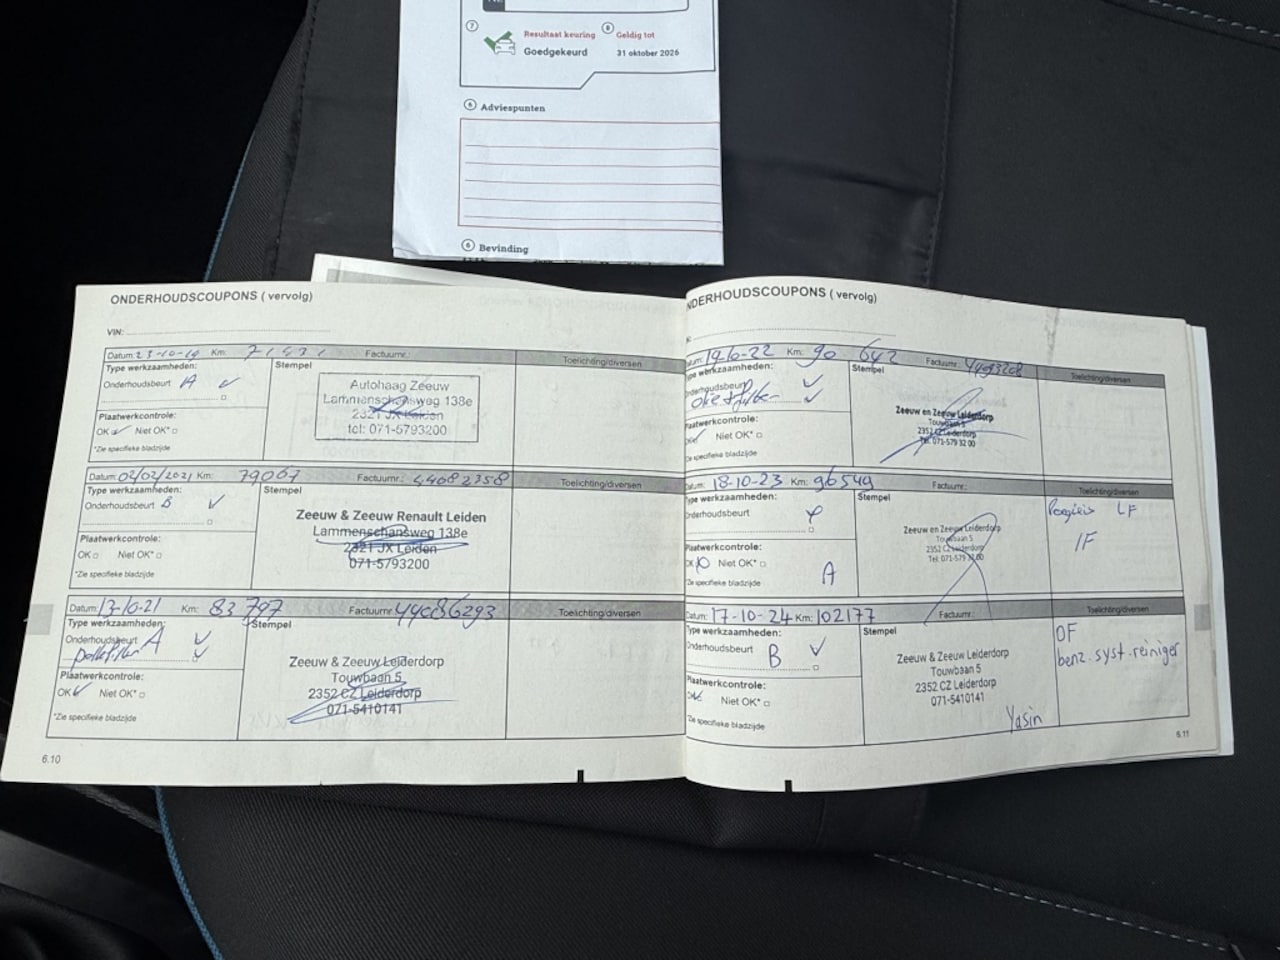 NL
7 Resultaat keuring 8 Geldig tot
Goedgekeurd 31 oktober 2026
6 Adviespunten
6 Bevinding
ONDERHOUDSCOUPONS ( vervolg)
VIN:
Datum: 23-10-19 Km: Factuurnr.: Toelichting/diversen
Type werkzaamheden: Stempel
Onderhoudsbeurt A
Plaatwerkcontrole:
OK Niet OK*
*Zie specifieke bladzijde
Autohaag Zeeuw
Lammenschansweg 138e
2321 JX Leiden
tel: 071-5793200
Datum: 02/02/2021 Km: 79067 Factuurnr.: 44082358 Toelichting/diversen
Type werkzaamheden: Stempel
Onderhoudsbeurt B
Plaatwerkcontrole:
OK Niet OK*
*Zie specifieke bladzijde
Zeeuw & Zeeuw Renault Leiden
Lammenschansweg 138e
2321 JX Leiden
071-5793200
Datum: 13-10-21 Km: 83 797 Factuurnr.: 44086293 Toelichting/diversen
Type werkzaamheden: Stempel
Onderhoudsbeurt A
Plaatwerkcontrole:
OK Niet OK*
*Zie specifieke bladzijde
Zeeuw & Zeeuw Leiderdorp
Touwbaan 5
2352 CZ Leiderdorp
071-5410141
6.10
NDERHOUDSCOUPONS ( vervolg)
Km: 90 642 Factuurnr.: Toelichting/diversen
Type werkzaamheden: Stempel
Onderhoudsbeurt
Olie + filter
Plaatwerkcontrole:
Niet OK*
*Zie specifieke bladzijde
Zeeuw en Zeeuw Leiderdorp
Touwbaan 5
2352 CZ Leiderdorp
Tel. 071-579 32 00
Datum: 18-10-23 Km: 96549 Factuurnr.: Toelichting/diversen
Type werkzaamheden: Stempel
Onderhoudsbeurt
Plaatwerkcontrole:
OK Niet OK*
*Zie specifieke bladzijde A
Zeeuw en Zeeuw Leiderdorp
Touwbaan 5
2352 CZ Leiderdorp
Tel. 071-579 32 00
LF
IF
Datum: 17-10-24 Km: 102177 Factuurnr.: Toelichting/diversen
Type werkzaamheden: Stempel
Onderhoudsbeurt B
Plaatwerkcontrole:
OK Niet OK*
*Zie specifieke bladzijde
Zeeuw & Zeeuw Leiderdorp
Touwbaan 5
2352 CZ Leiderdorp
071-5410141
Yasin
OF
benz. syst. reiniger
6.11